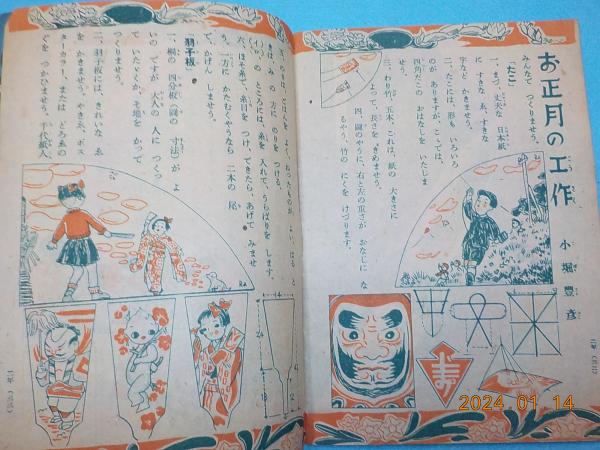 お正月の工作
小堀豊彦
みんなで つくりませう。
「たこ」
一、まづ、丈夫な 日本紙
に すきな ゑ、すきな
字など かきませう。
二、たこには、形も いろいろ
のが ありますが、こしては、
四角だこの おはなしを いたしま
せう。
三、わり竹、五本、これは、紙の 大きさに
よつて、長さを きめませう。
四、圖のやうに、右と左の重さが おなじに な
るやう、竹の にくを けづります。
寿
きは、みの 方に のりを つける。
の ところには、糸を 入れて、うらばりを します。
六、ほそ糸で、糸目を つけ、できたら、あげて みませ
う。一方に かたむくやうなら 二本の 尾
で、かげん しませう。
羽子板
一、桐の 四分板(圖の 寸法)が よ
いの ですが、大人の 人に つくつ
て いたゞくか、そ地を かつて
つくりませう。
二、羽子板には、きれいな ゑ
を かきませう。やきゑ、ポス
ターカラー、または どろゑの
ぐを つかひませう。千代紙人
2024.01.14